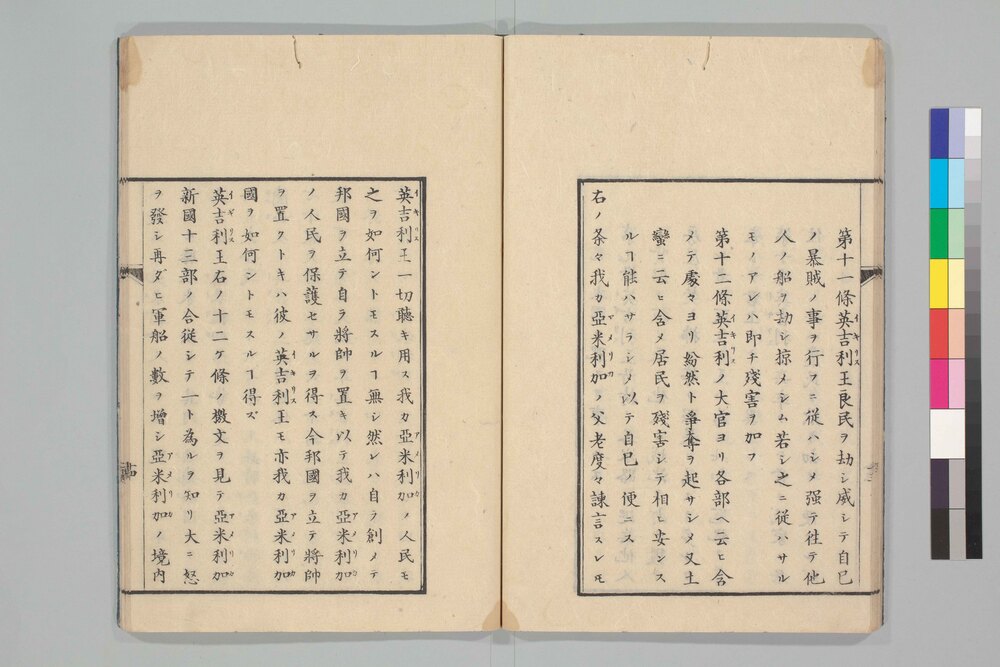 第十一條英吉利王良民ヲ劫シ威シテ自巳
ノ暴賊ノ事ヲ行フニ従ハシメ强テ徃テ他
人ノ船ヲ劫シ掠メシム若シ之ニ従ハサル
モノアレハ即チ殘害ヲ加フ
第十二條英吉利ノ大官ヨリ各部ヘ云ヒ含
メテ處々ヨリ紛然ト爭奪ヲ起サシメ又土
蠻ニ云ヒ含メ居民ヲ殘害シテ相ヒ安ンス
ルヿ能ハサラシメ以テ自巳ノ便ニス
右ノ条々我カ亞米利加ノ父老度々諫言スレモ
英吉利王一切聽キ用ス我カ亞米利加ノ人民モ
之ヲ如何ントモスルヿ無シ然レハ自ラ創メテ
邦國ヲ立テ自ラ將帥ヲ置キ以テ我カ亞米利加
ノ人民ヲ保護セサルヲ得ス今邦國ヲ立テ將帥
ヲ置クトキハ彼ノ英吉利王モ亦我カ亞米利加
國ヲ如何ントモスルヿ得ズ
英吉利王右ノ十二ケ條ノ檄文ヲ見テ亞米利加
新國十三部ノ合従シテ一ト為ルヲ知リ大ニ怒
ヲ發シ再ダヒ軍船ノ數ヲ增シ亞米利加ノ境内